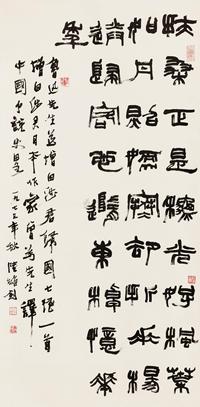 扶桑正是穐光好楓葉
如丹照嫩寒却折垂楊
送歸客心隨東棹憶華
年
魯迅先生送增田涉君歸國七絕一首
增田涉君日本作家曾為先生譯
中國小說史略 一九七三年秋 陸維釗